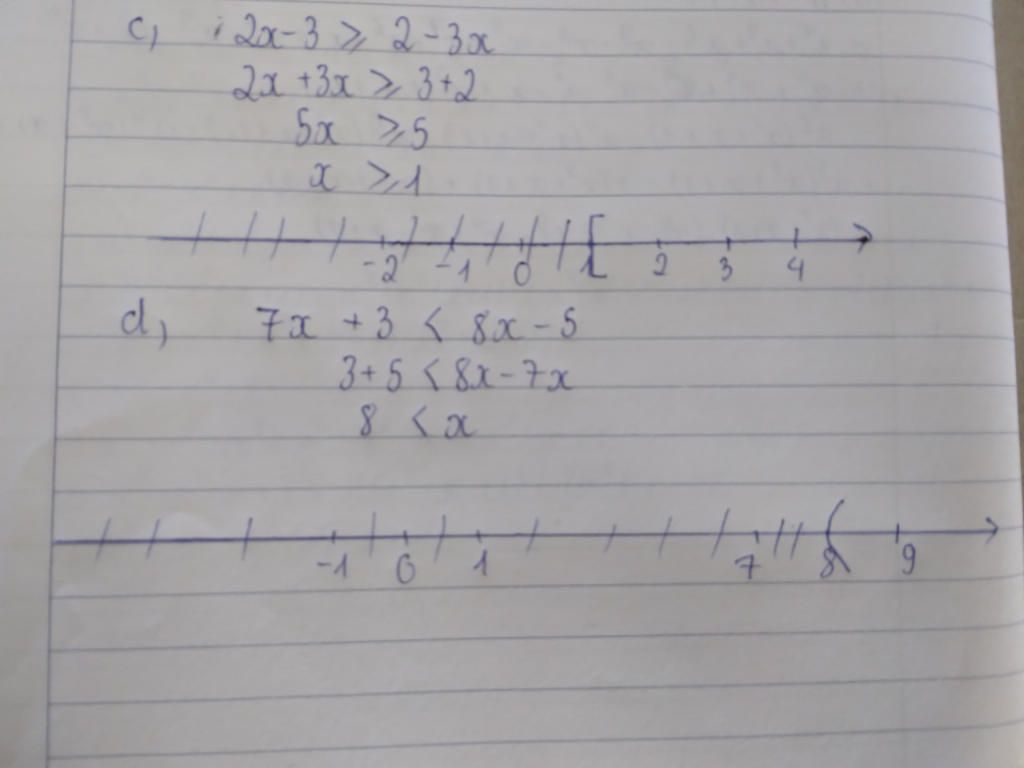 c, 2x-3 ⩾ 2-3x
2x+3x ⩾ 3+2
5x ⩾ 5
x ⩾ 1
-2 -1 0 1 [ 2 3 4
d, 7x + 3 < 8x - 5
3+5 < 8x-7x
8 < x
-1 0 1 7 8 ( 9